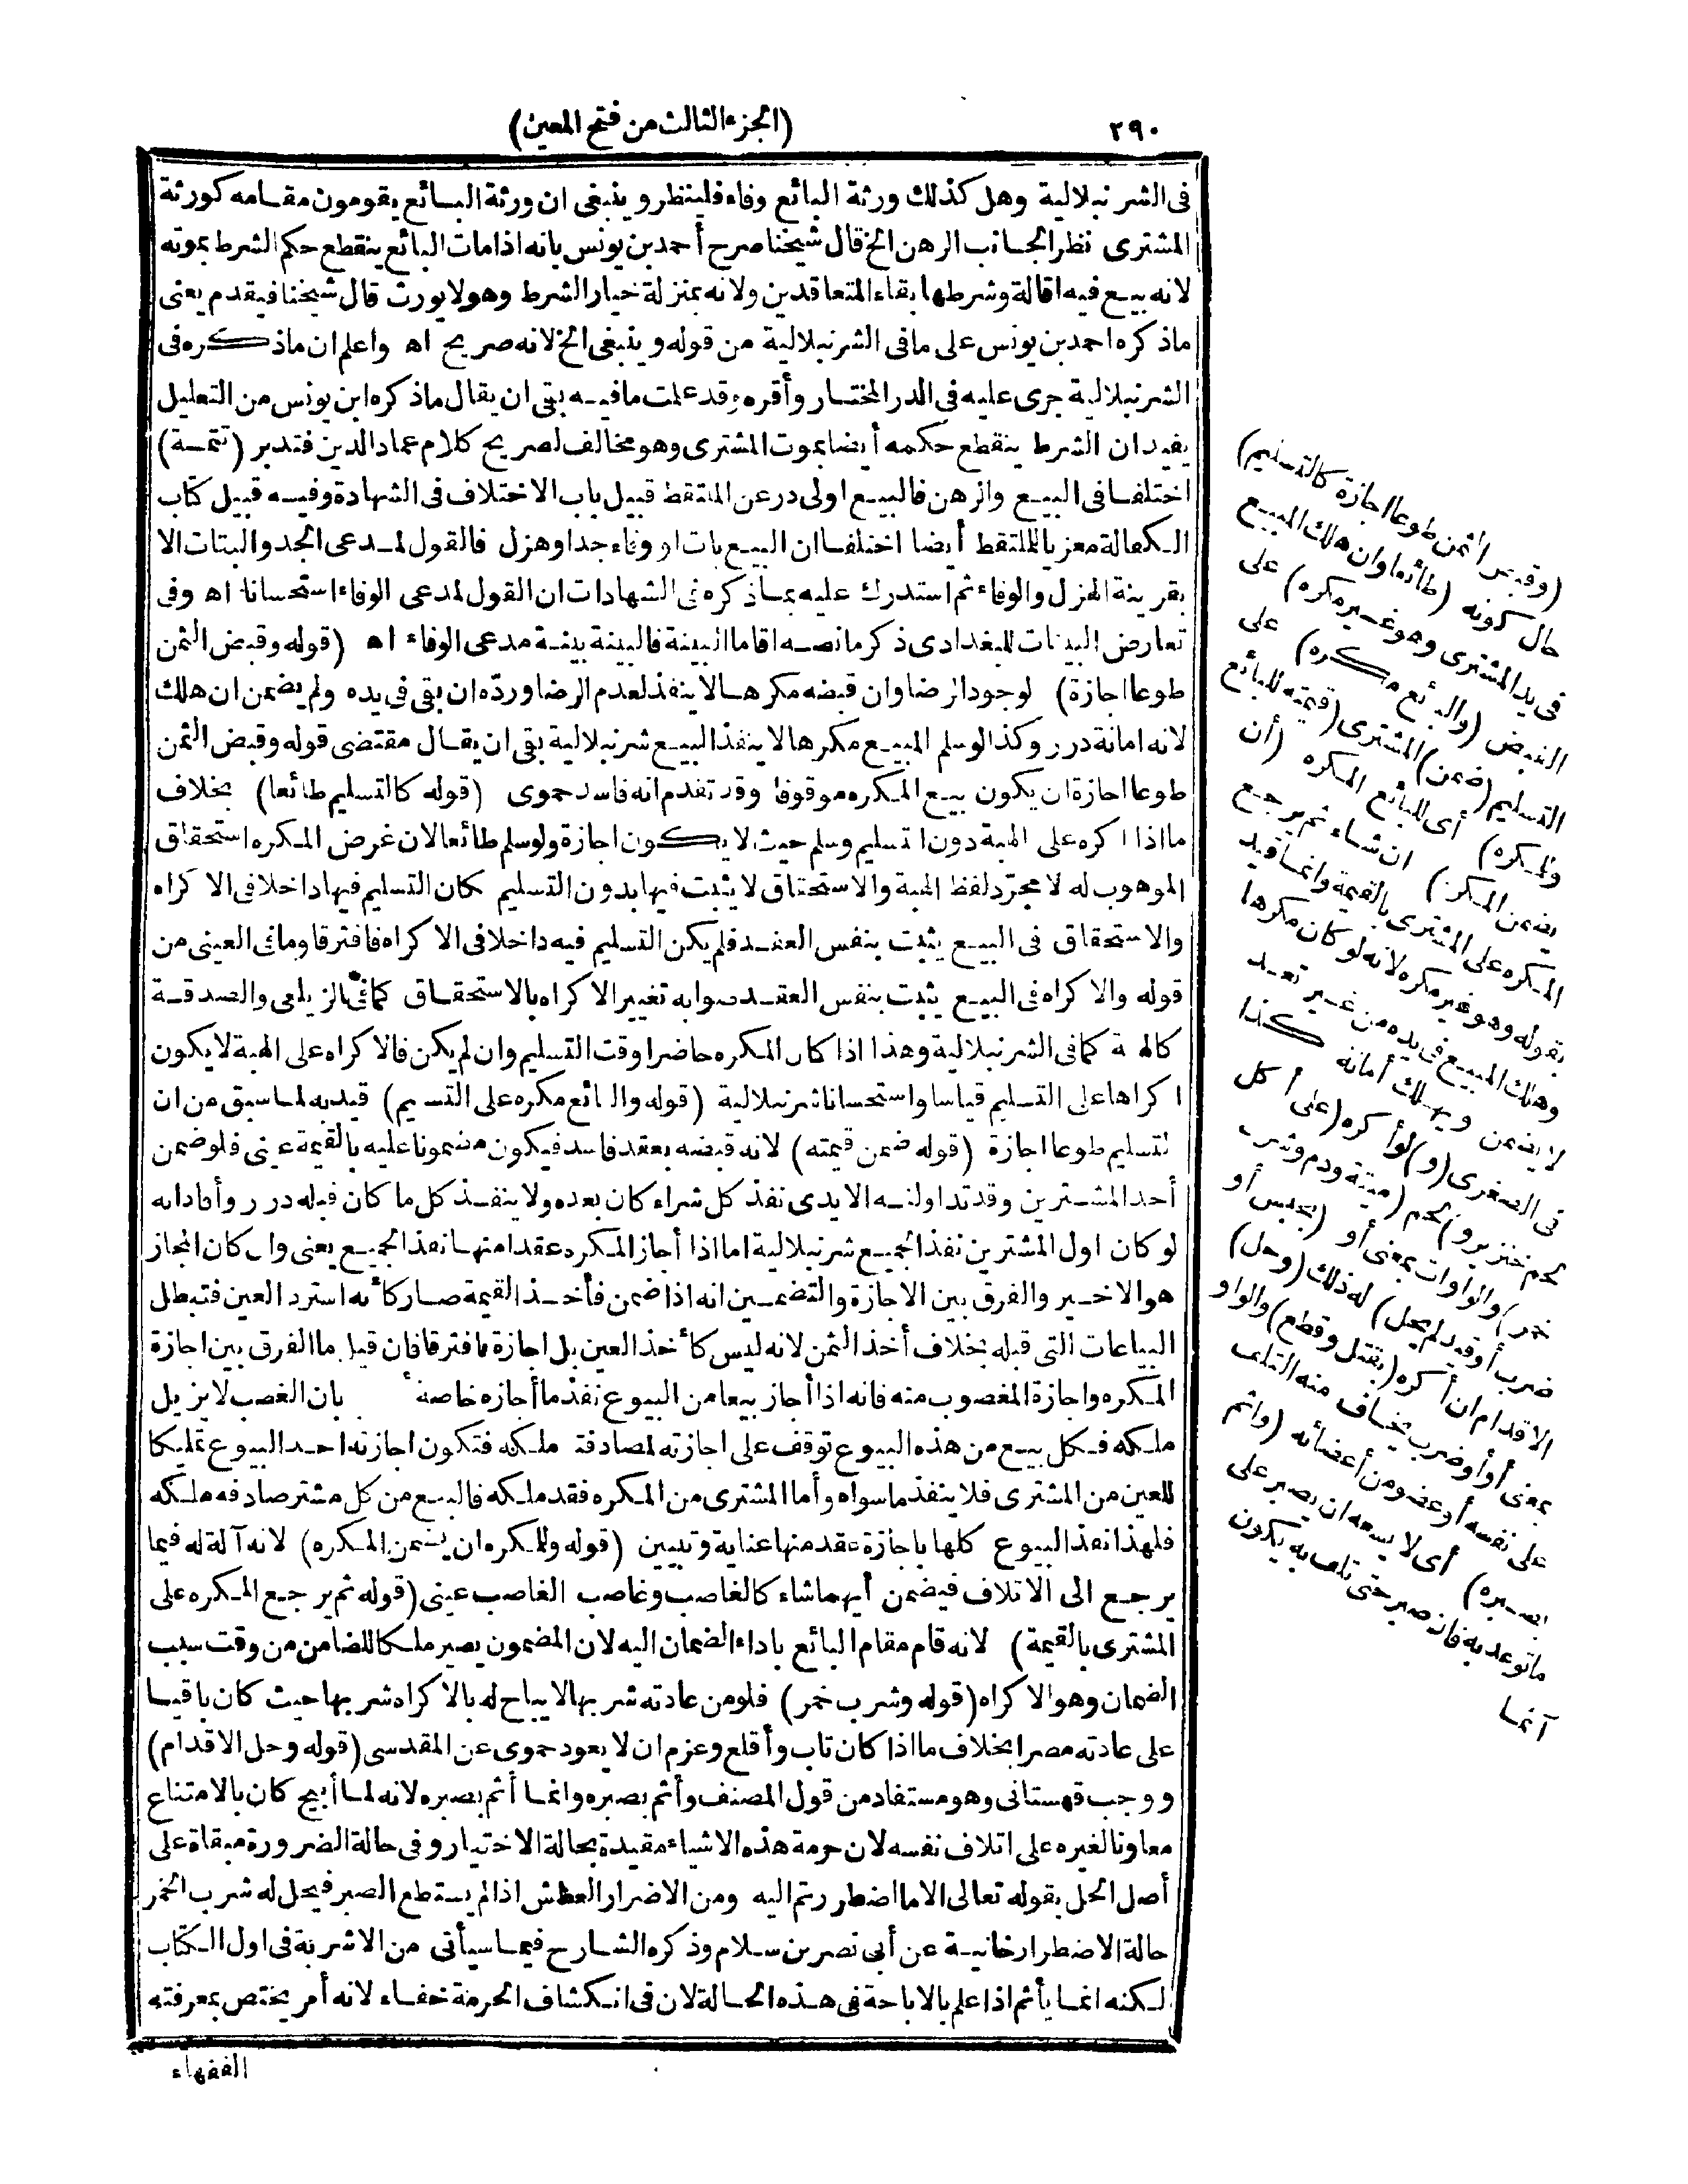 ٢٩٠
(الجزء الثالث من فتح المعين)
فى الشرنبلالية وهل كذلك ورثة البائع وفاء فلينظر وينبغى ان ورثة البائع يقومون مقامه كورثة
المشترى نظرا لجانب الرهن الخ قال شيخنا صرح أحمد بن يونس بانه اذا مات البائع ينقطع حكم الشرط بموته
لانه بيع فيه اقالة وشرطها بقاء المتعاقدين ولانه بمنزلة خيار الشرط وهو لا يورث قال شيخنا فيقدم يعنى
ماذكره احمد بن يونس على ما فى الشرنبلالية من قوله وينبغى الخ لانه صريح اه واعلم ان ماذكره فى
الشرنبلالية جرى عليه فى الدر المختار وأقره وقد علمت ما فيه بقى ان يقال ماذكره ابن يونس من التعليل
يفيد ان الشرط ينقطع حكمه أيضا بموت المشترى وهو مخالف لصريح كلام عماد الدين فتدبر (تتمة)
اختلفا فى البيع والرهن فالبيع اولى در عن الملتقط قبيل باب الاختلاف فى الشهادة وفيه قبيل كتاب
الكفالة معزيا للملتقط أيضا اختلفا ان البيع بات او وفاء جد او هزل فالقول لمدعى الجد والبتات الا
بقرينة الهزل والوفاء ثم استدرك عليه بما ذكره فى الشهادات ان القول لمدعى الوفاء استحسانا اه وفى
تعارض البينات للبغدادى ذكر مانصه اقاما البينة فالبينة بينة مدعى الوفاء اه (قوله وقبض الثمن
طوعا اجازة) لوجود الرضا وان قبضه مكرها لا ينفذ لعدم الرضا ورده ان بقى فى يده ولم يضمن ان هلك
لانه امانة درر وكذا لو سلم المبيع مكرها لا ينفذ البيع شرنبلالية بقى ان يقال مقتضى قوله وقبض الثمن
طوعا اجازة ان يكون بيع المكره موقوفا وقد تقدم انه فاسد حموى (قوله كالتسليم طائعا) بخلاف
ما اذا اكره على الهبة دون التسليم وسلم حيث لا يكون اجازة ولو سلم طائعا لان غرض المكره استحقاق
الموهوب له لا مجرد لفظ الهبة والاستحقاق لا يثبت فيها بدون التسليم كان التسليم فيها داخلا فى الاكراه
والاستحقاق فى البيع يثبت بنفس العقد فلم يكن التسليم فيه داخلا فى الاكراه فافترقا وما فى العينى من
قوله والاكراه فى البيع يثبت بنفس العقد صوابه تغيير الاكراه بالاستحقاق كما فى الزيلعى والصدقة
كالهبة كما فى الشرنبلالية وهذا اذا كان المكره حاضرا وقت التسليم وان لم يكن فالاكراه على الهبة لا يكون
اكراها على التسليم قياسا واستحسانا شرنبلالية (قوله والبائع مكره على التسليم) قيد به لما سبق من ان
التسليم طوعا اجازة (قوله ضمن قيمته) لانه قبضه بعقد فاسد فيكون مضمونا عليه بالقيمة عينى فلو ضمن
أحد المشترين وقد تداولته الايدى نفذ كل شراء كان بعده ولا ينفذ كل ما كان قبله درر وأفاد انه
لو كان اول المشترين نفذ الجميع شرنبلالية اما اذا أجاز المكره عقدا منها نفذ الجميع يعنى وان كان المجاز
هو الاخير والفرق بين الاجازة والتضمين انه اذا ضمن فأخذ القيمة صار كأنه استرد العين فتبطل
البياعات التى قبله بخلاف أخذ الثمن لانه ليس كأخذ العين بل اجازة فافترقا فان قيل ما الفرق بين اجازة
المكره واجازة المغصوب منه فانه اذا أجاز بيعا من البيوع نفذ ما أجازه خاصة بان الغصب لا يزيل
ملكه فكل بيع من هذه البيوع توقف على اجازته لمصادفة ملكه فتكون اجازته احد البيوع تمليكا
للعين من المشترى فلا ينفذ ما سواه وأما المشترى من المكره فقد ملكه فالبيع من كل مشتر صادفه ملكه
فلهذا نفذ البيوع كلها باجازة عقد منها عناية وتبيين (قوله وللمكره ان يضمن المكره) لانه آلة له فيما
يرجع الى الاتلاف فيضمن أيهما شاء كالغاصب وغاصب الغاصب عينى (قوله ثم يرجع المكره على
المشترى بالقيمة) لانه قام مقام البائع باداء الضمان اليه لان المضمون يصير ملكا للضامن من وقت سبب
الضمان وهو الاكراه (قوله وشرب خمر) فلو من عادته شربها لا يباح له بالاكراه شربها حيث كان باقيا
على عادته مصرا بخلاف ما اذا كان تاب وأقلع وعزم ان لا يعود حموى عن المقدسى (قوله وحل الاقدام)
ووجب قهستانى وهو مستفاد من قول المصنف وأثم بصبره وانما أثم بصبره لانه لما أبيح كان بالامتناع
معاونا لغيره على اتلاف نفسه لان حرمة هذه الاشياء مقيدة بحالة الاختيار وفى حالة الضرورة مبقاة على
أصل الحل بقوله تعالى الا ما اضطررتم اليه ومن الاضرار العطش اذا لم يستطع الصبر فيحل له شرب الخمر
حالة الاضطرار خانية عن أبى نصر بن سلام وذكره الشارح فيما سيأتى من الاشربة فى اول الكتاب
لكنه انما يأثم اذا علم بالاباحة فى هذه الحالة لان فى انكشاف الحرمة خفاء لانه أمر يختص بمعرفته
الفقهاء
(وقبض الثمن طوعا اجازة كالتسليم)
حال كونه (طائعا وان هلك المبيع
فى يد المشترى وهو غير مكره) على
القبض (والبائع مكره) على
التسليم (ضمن) المشترى (قيمته للبائع
وللمكره) أى للبائع المكره (أن
يضمن المكره) ان شاء ثم يرجع
المكره على المشترى بالقيمة وانما قيد
بقوله وهو غير مكره لانه لو كان مكرها
وهلك المبيع فى يده من غير تعد
لا يضمن ويهلك أمانة كذا
فى الصغرى (و) لو أكره (على أكل
لحم خنزير و) لحم (ميتة ودم وشرب
خمر) والواوات بمعنى أو (بحبس أو
ضرب أو قيد لم يحل) له ذلك (وحل)
الاقدام ان أكره (بقتل وقطع) والواو
بمعنى أو أو ضرب يخاف منه التلف
على نفسه أو عضو من أعضائه (واثم
بصبره) أى لا يسعه ان يصبر على
ما توعد به فان صبر حتى تلف به يكون
آثما